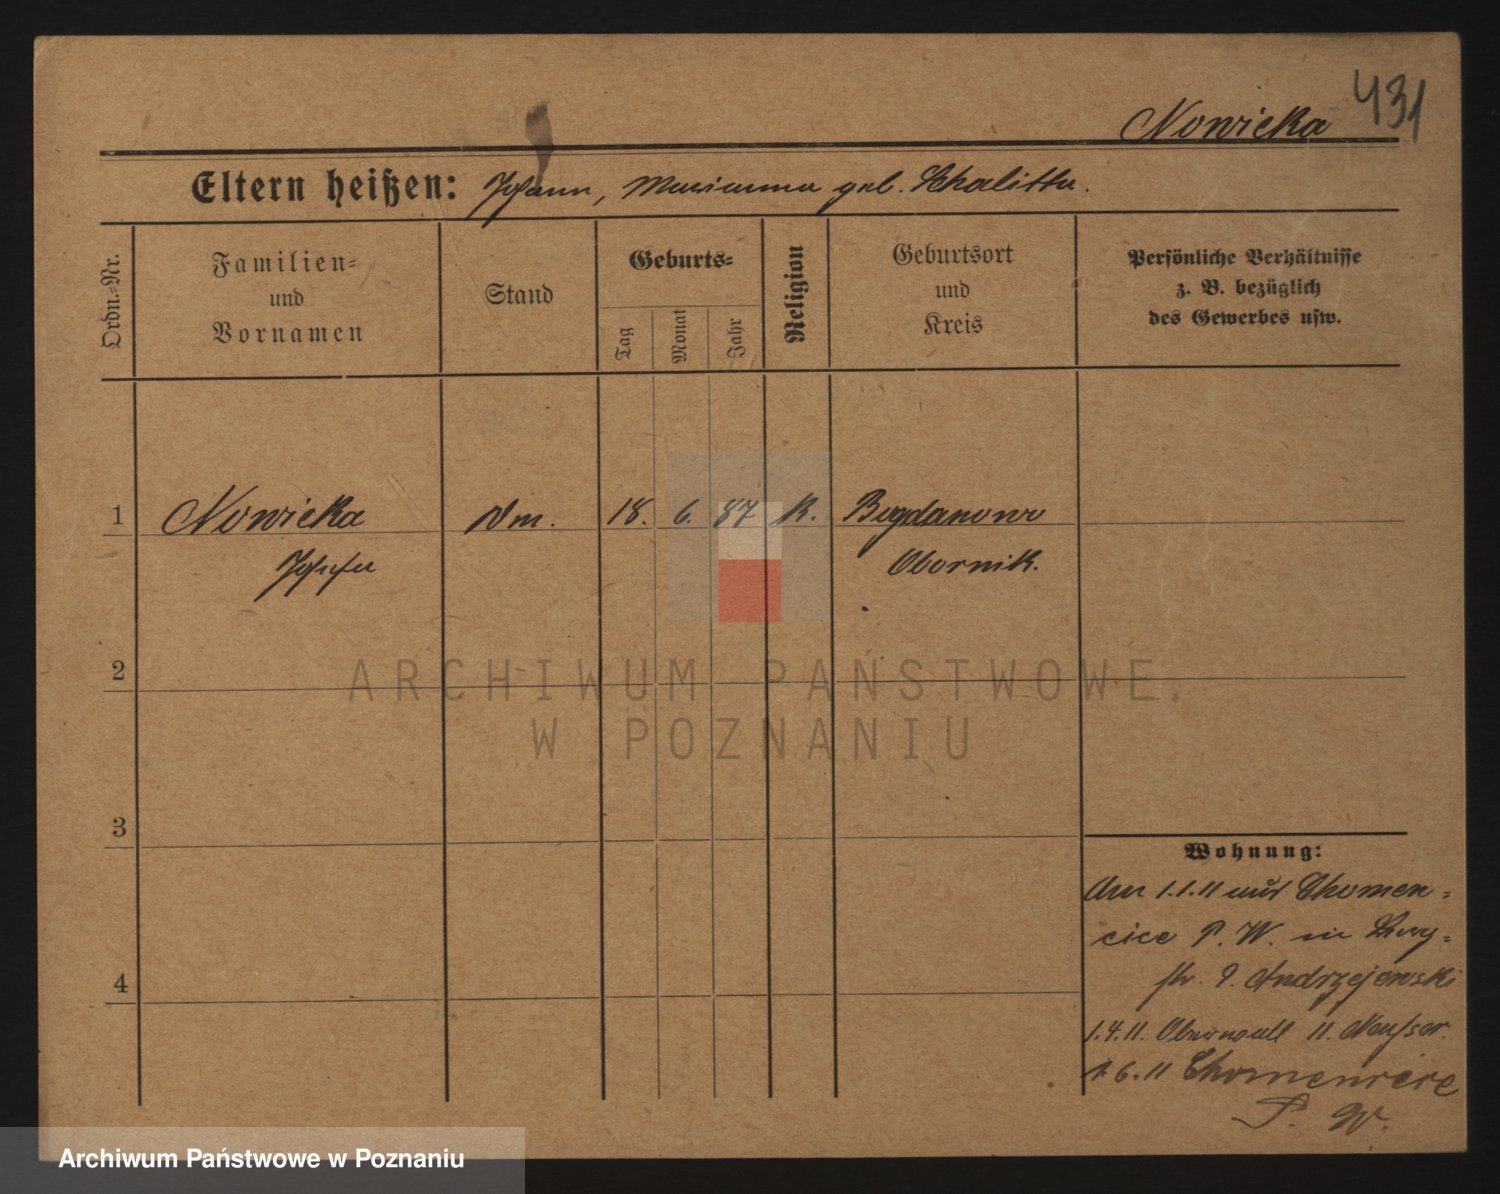 431
Nowicka
Eltern heißen: Johann, Marianna geb. Skalitta.
Ordn.-Nr.
Familien-
und
Vornamen
Stand
Geburts-
Tag
Monat
Jahr
Religion
Geburtsort
und
Kreis
Persönliche Verhältnisse
z. B. bezüglich
des Gewerbes usw.
1 Nowicka Dm. 18. 6. 87 K. Bogdanowo
Josefa Obornik.
2
3
4
Wohnung:
1.1.11 Chomen-
cice P. W. in
Andrzejewski
1.4.11. 11.
1.6.11 Chomencice
P. W.
ARCHIWUM PAŃSTWOWE
W POZNANIU
Archiwum Państwowe w Poznaniu